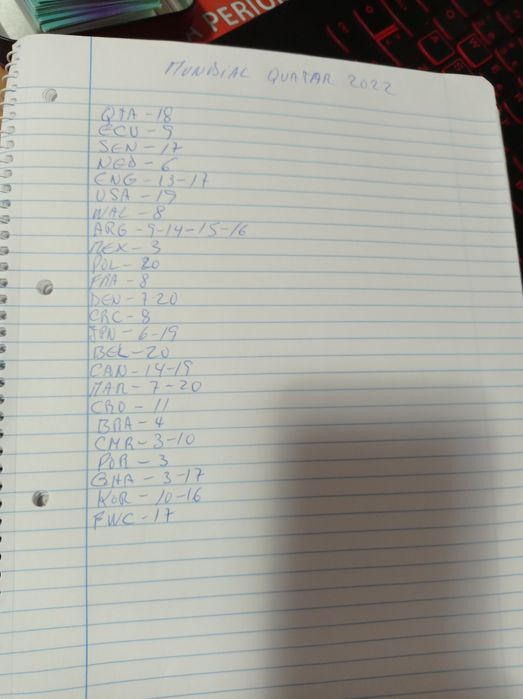 PERIO
MUNDIAL QUATAR 2022
QTA-18
ECU-9
SEN-17
NED-6
ENG-13-17
USA-19
WAL-8
ARG-9-14-15-16
MEX-3
POL-20
FRA-8
DEN-7-20
CRC-8
JPN-6-19
BEL-20
CAN-14-19
MAR-7-20
CRO-11
BRA-4
CMR-3-10
POR-3
GHA-3-17
KOR-10-16
FWC-17